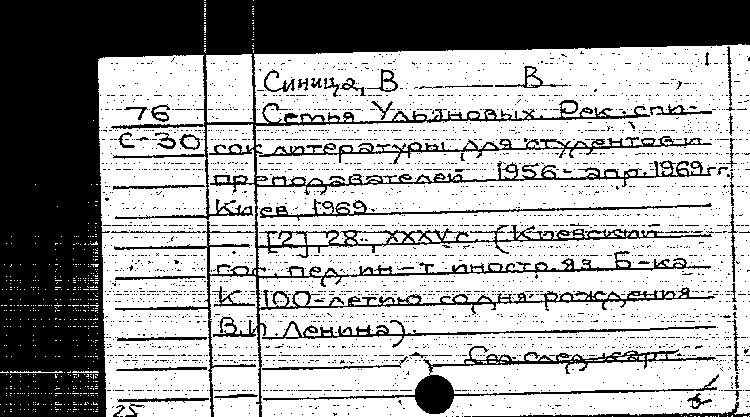 Синица, В В
76 Семья Ульяновых. Рек. спи-
С-30 сок литературы для студентов и
преподавателей 1956 - апр. 1969 гг.
Киев, 1969.
[2], 28, XXXV с. (Киевский
гос. пед. ин-т иностр. яз. Б-ка
К 100-летию со дня рождения
В.И. Ленина).
См. след. карт.
25